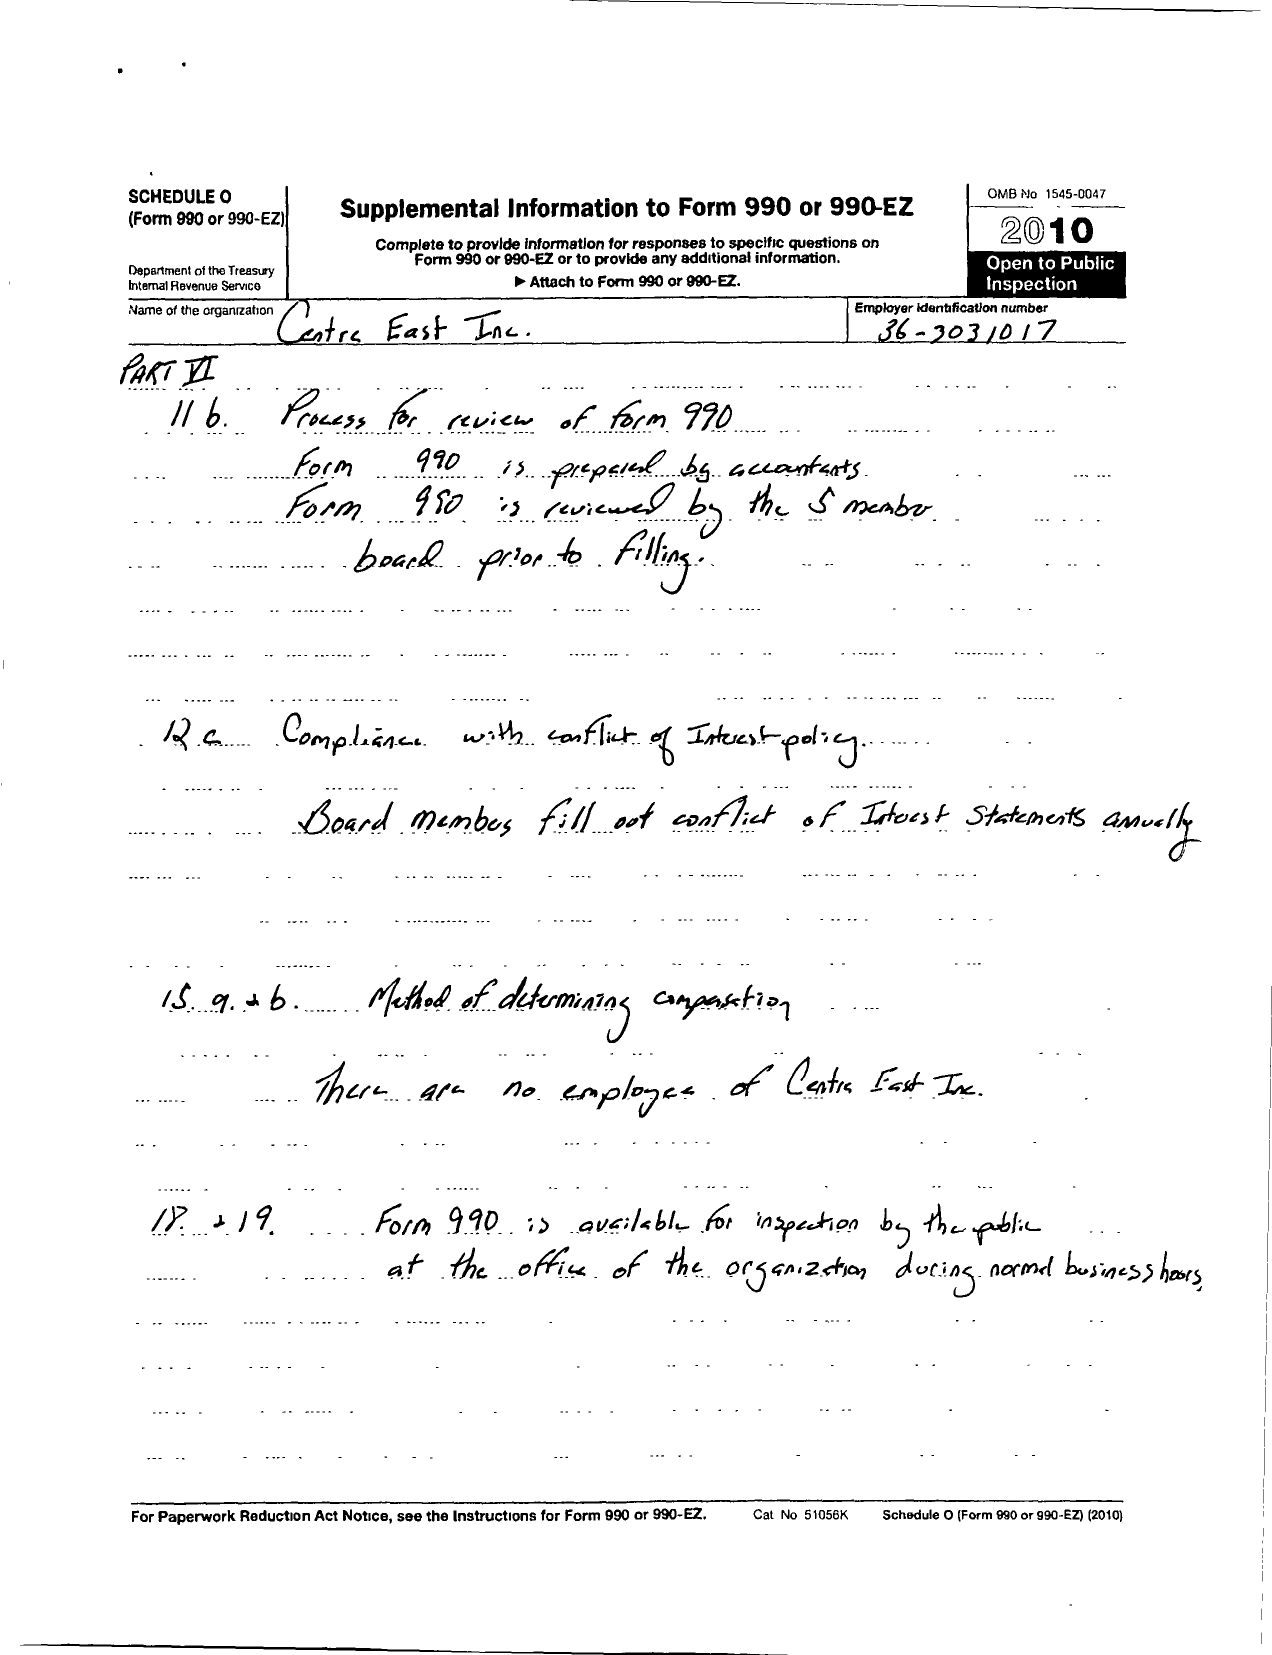 SCHEDULE O
(Form 990 or 990-EZ)
Department of the Treasury
Internal Revenue Service
Supplemental Information to Form 990 or 990-EZ
Complete to provide information for responses to specific questions on
Form 990 or 990-EZ or to provide any additional information.
▶ Attach to Form 990 or 990-EZ.
OMB No 1545-0047
2010
Open to Public
Inspection
Name of the organization
Centre East Inc.
Employer identification number
36-3031017
PART VI
11 b. Process for review of form 990
Form 990 is prepared by accountants.
Form 990 is reviewed by the 5 member
board prior to filling.
12 c Compliance with conflict of Interest policy
Board members fill out conflict of Interest Statements annually
15. a. + b. Method of determining compensation
There are no employees of Centre East Inc.
18. + 19. Form 990 is available for inspection by the public
at the office of the organization during normal business hours.
For Paperwork Reduction Act Notice, see the Instructions for Form 990 or 990-EZ. Cat No 51056K Schedule O (Form 990 or 990-EZ) (2010)